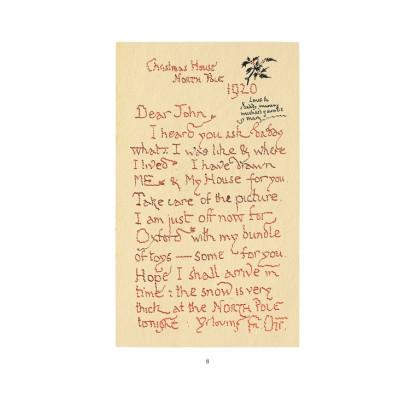 Christmas House
NORTH POLE
1920
Love to
daddy mummy
michael & auntie
mary
Dear John,
I heard you ask daddy
what I was like & where
I lived. I have drawn
ME & My House for you.
Take care of the picture.
I am just off now for
Oxford with my bundle
of toys — some for you.
Hope I shall arrive in
time: the snow is very
thick at the NORTH POLE
tonight: Yr loving Fr. Chr.
8